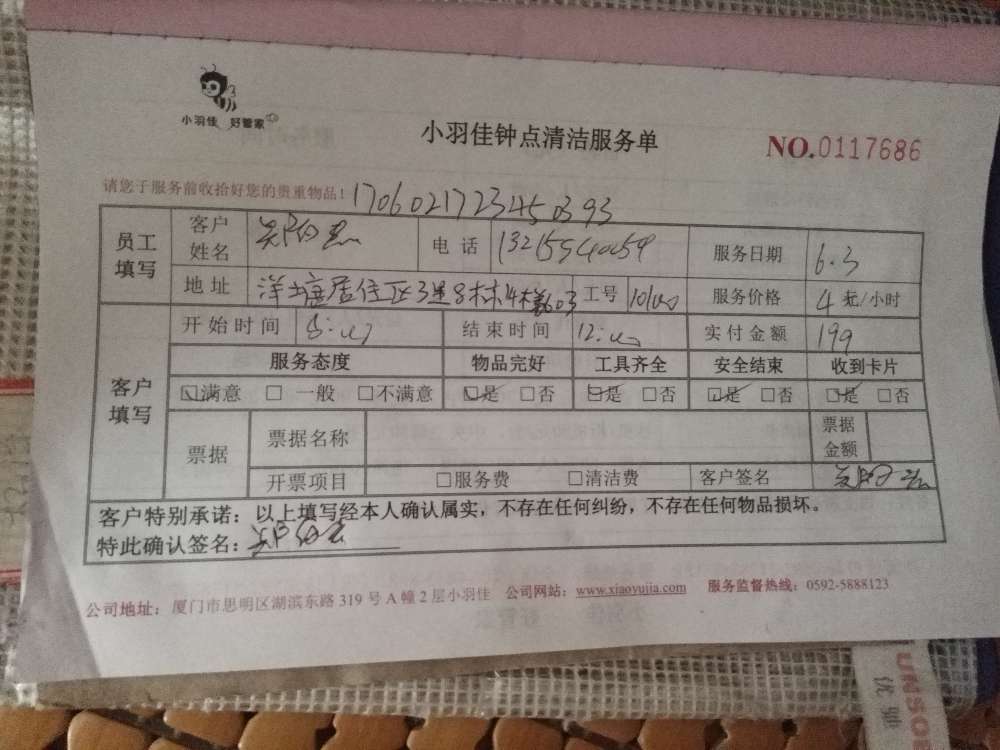 小羽佳 好管家
小羽佳钟点清洁服务单
NO.0117686
请您于服务前收拾好您的贵重物品! 1706021723450393
员工填写 客户姓名 电话 13215940059 服务日期 6.3
地址 洋塘居住区3里8栋4梯603 工号 服务价格 4 元/小时
客户填写 开始时间 8:00 结束时间 12:00 实付金额 199
服务态度 物品完好 工具齐全 安全结束 收到卡片
☑满意 □ 一般 □不满意 ☑是 □否 ☑是 □否 ☑是 □否 ☑是 □否
票据 票据名称 票据金额
开票项目 □服务费 □清洁费 客户签名
客户特别承诺:以上填写经本人确认属实,不存在任何纠纷,不存在任何物品损坏。
特此确认签名:
公司地址:厦门市思明区湖滨东路 319 号 A 幢 2 层小羽佳 公司网站:www.xiaoyujia.com 服务监督热线:0592-5888123